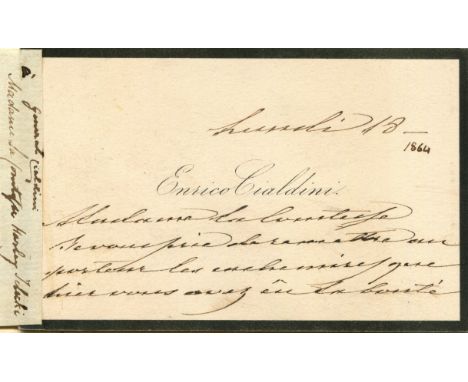 à
Generale Cialdini
Madame La Comtesse
Lundi 18 —
1864
Enrico Cialdini.
Madame La Comtesse
Je vous prie de remettre au
porteur les cachemires que
hier vous avez eu la bonté